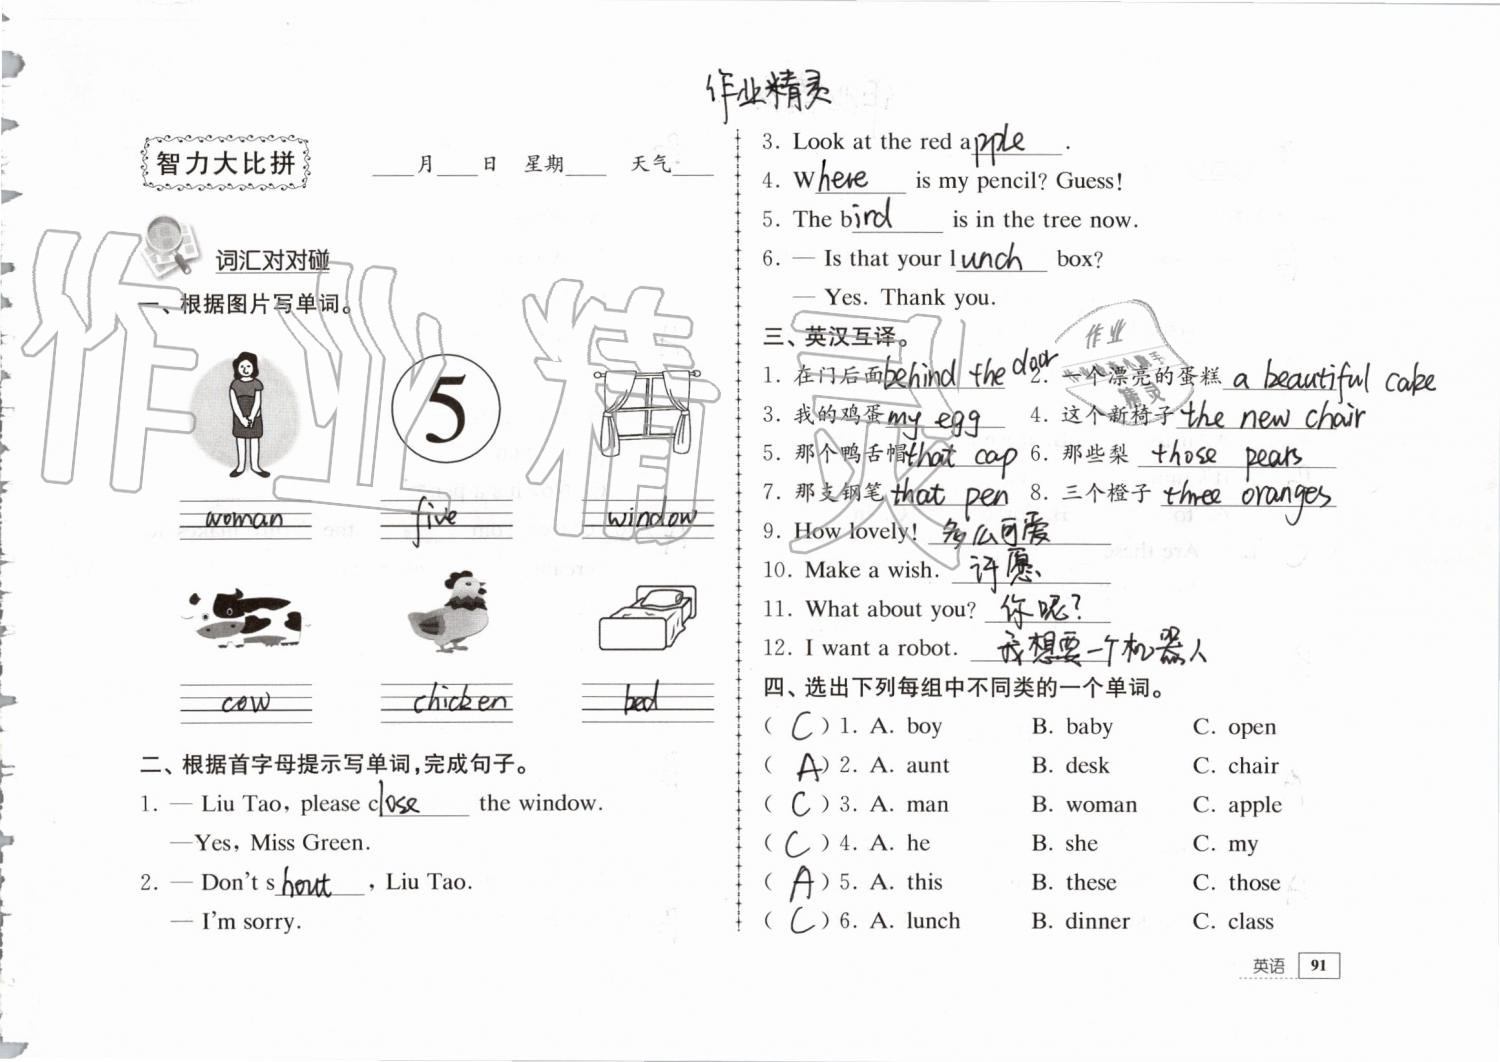 作业精灵
智力大比拼 ____月____日 星期____ 天气____
词汇对对碰
一、根据图片写单词。
5
woman five window
cow chicken bed
二、根据首字母提示写单词,完成句子。
1. — Liu Tao, please close the window.
—Yes, Miss Green.
2. — Don't shout, Liu Tao.
— I'm sorry.
3. Look at the red apple.
4. Where is my pencil? Guess!
5. The bird is in the tree now.
6. — Is that your lunch box?
— Yes. Thank you.
三、英汉互译。
1. 在门后面 behind the door 2. 一个漂亮的蛋糕 a beautiful cake
3. 我的鸡蛋 my egg 4. 这个新椅子 the new chair
5. 那个鸭舌帽 that cap 6. 那些梨 those pears
7. 那支钢笔 that pen 8. 三个橙子 three oranges
9. How lovely! 多么可爱
10. Make a wish. 许愿
11. What about you? 你呢?
12. I want a robot. 我想要一个机器人
四、选出下列每组中不同类的一个单词。
( C ) 1. A. boy B. baby C. open
( A ) 2. A. aunt B. desk C. chair
( C ) 3. A. man B. woman C. apple
( C ) 4. A. he B. she C. my
( A ) 5. A. this B. these C. those
( C ) 6. A. lunch B. dinner C. class
英语 91
作业精灵
作业
精灵